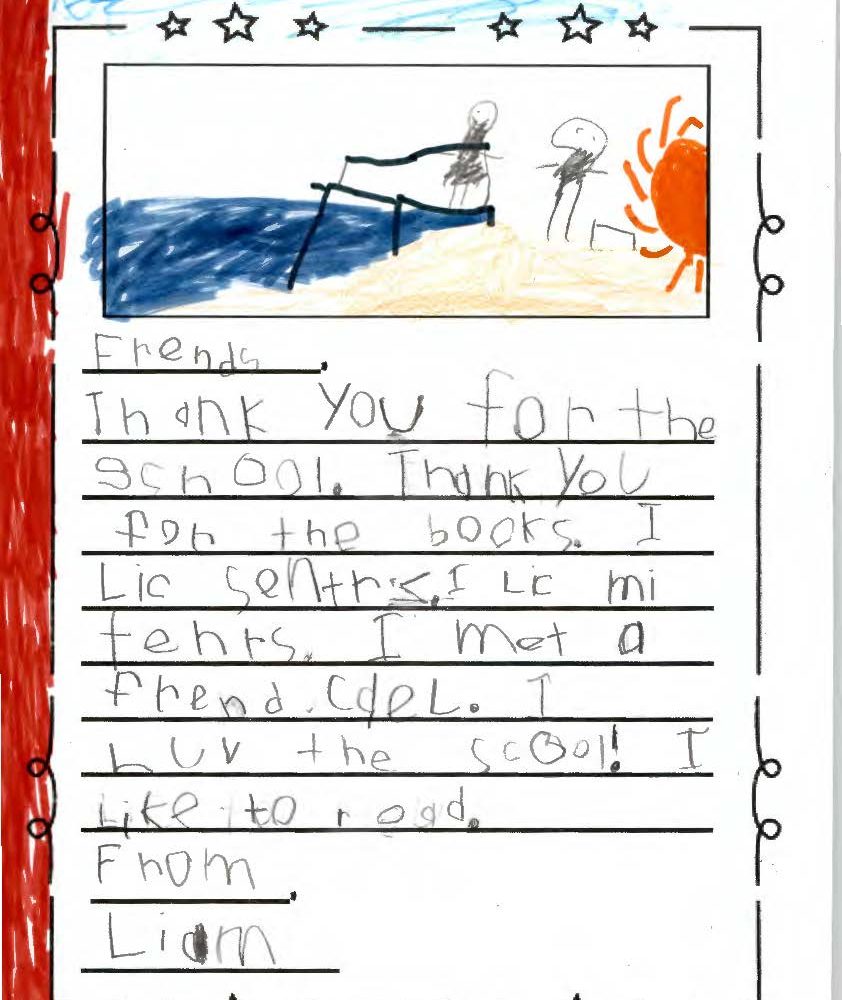 Frends,
Thank you for the
school. Thank You
for the books. I
Lic sentrs. I Lic mi
tehrs. I met a
frend. Cdel. I
Luv the scool! I
Like to read.
From,
Liam